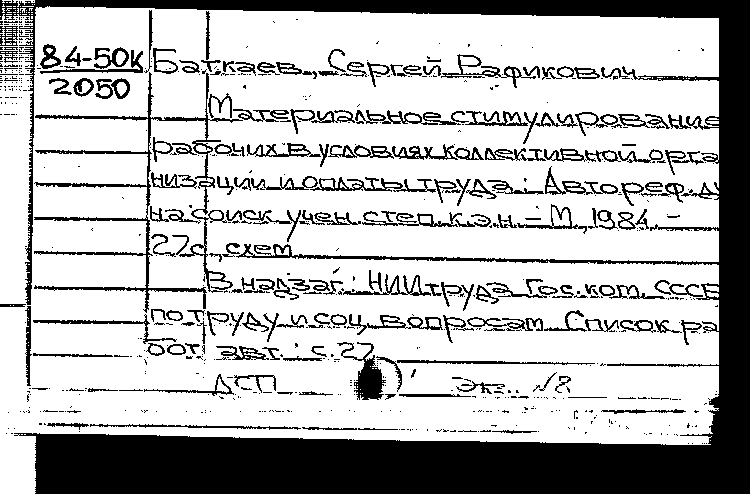 84-50к Баткаев, Сергей Рафикович
2050
Материальное стимулирование
рабочих в условиях коллективной орга
низации и оплаты труда : Автореф. д
на соиск учен. степ. к.э.н. – М, 1984. –
27с., схем
В надзаг.: НИИ труда Гос. ком. СССР
по труду и соц. вопросам. Список ра
бот авт.: с.27
ДСП Экз.. №8